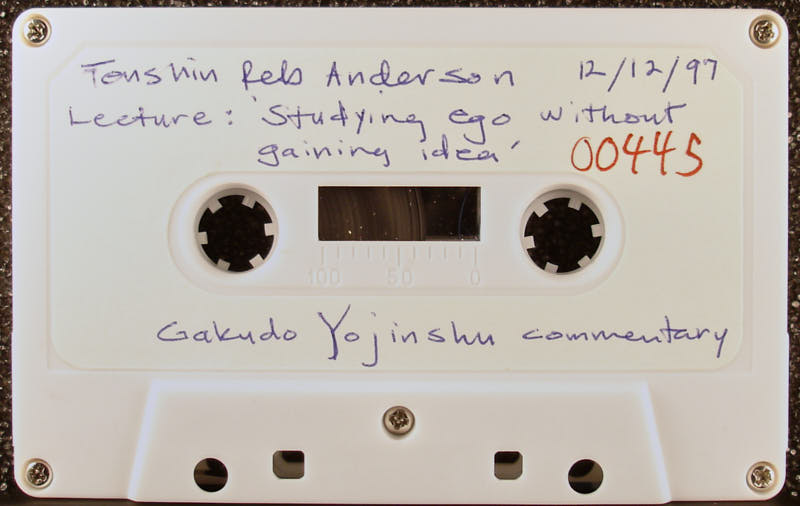 Tenshin Reb Anderson 12/12/97
Lecture: 'Studying ego without
gaining idea' 00445
100 50 0
Gakudo Yojinshu commentary